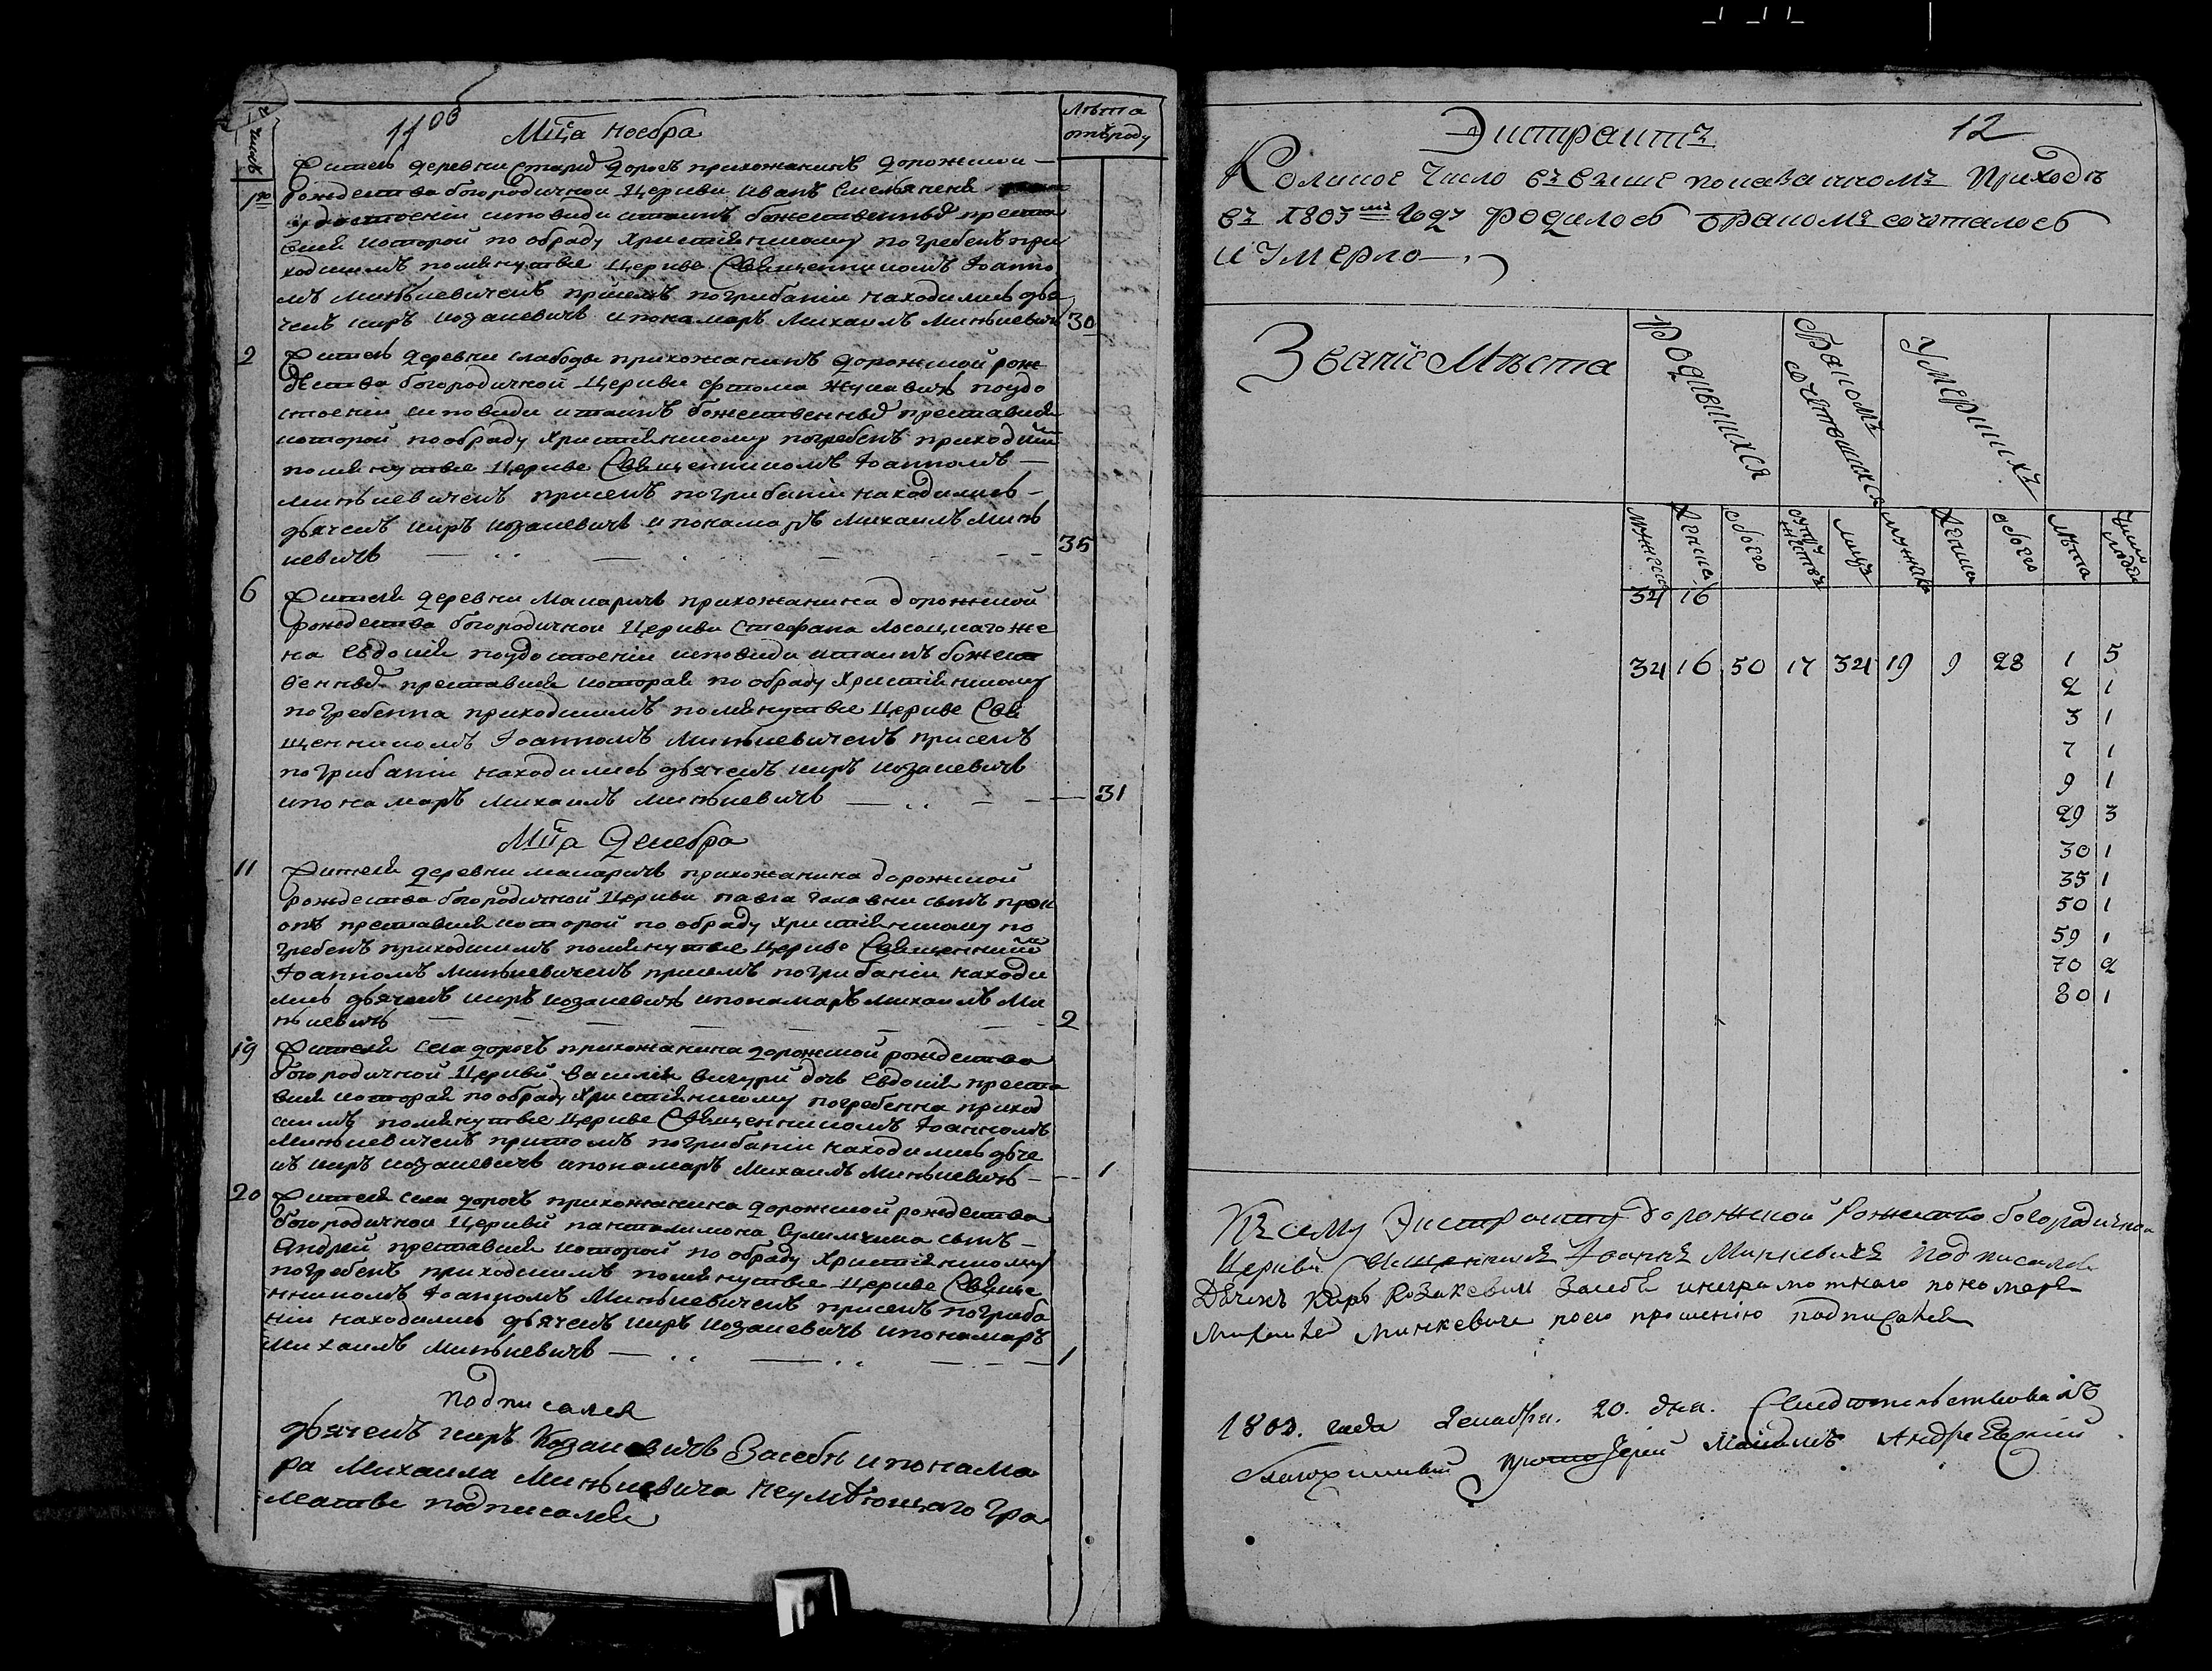 числѣ
Мца ноебра
Лѣта
отъ роду
Жителъ деревни Старыхъ Дорогъ прихожанинъ Дорожской
1го
рождества богородичной Церкви Иванъ
исповѣди итаинъ божественныхъ преста
вися которой по обряду християнскому погребенъ при
ходскимъ помянутые Церкве Священникомъ Іоанно
мъ Минкевичемъ присемъ погрибаніи находились дья
чекъ киръ козакевичъ ипонамаръ Михаилъ Минкевичъ 30
2 Жителъ деревни слабоды прихожанинъ дорожской рож
дества богородичной Церкви поудо
стоеніи исповѣди итаинъ божественныхъ преставися
которой пообряду християнскому погребенъ приходским
помянутые Церкве Священникомъ Іоанномъ
минкевичемъ присемъ погрибаніи находились
дьячекъ киръ козакевичъ ипонамаръ Михаилъ Минк
кевичъ 35
6 Жителя деревни Макаричъ прихожанина дорожской
рождества богородичной Церкви Стефана Лосоцкаго же
на Евдокия поудостоеніи исповѣди итаинъ божест
венныхъ преставися которая по обряду Християнскому
погребенна приходскимъ помянутые Церкве Свя
щенникомъ Іоанномъ Минкевичемъ присемъ
погрибаніи находились дьячекъ киръ козакевичъ
ипонамаръ михаилъ минкевичъ 31
Мца Декебра
11 Жителя деревни макаричъ прихожанина дорожской
рождества богородичной Церкви павла сынъ прок
опъ преставися которой по обряду християнскому по
гребенъ приходскимъ помянутые Церкве Священником
Іоанномъ Минкевичемъ присемъ погрибаніи находи
лись дьячекъ киръ козакевичъ ипонамаръ михаилъ Ми
нкевичъ 2
19 Жителя села дорогъ прихожанина дорожской рождества
богородичной Церкви василия дочь Евдокия преста
вися которая по обряду християнскому погребенна приход
скимъ помянутые Церкве Священникомъ Іоанномъ
Минкевичемъ притомъ погрибаніи находились дьяче
къ киръ козакевичъ ипонамаръ михаилъ Минкевичъ 1
20 Жителя села дорогъ прихожанина дорожской рождества
богородичной Церкви панталимона сынъ
Андрей преставися которой по обряду Християнскому
погребенъ приходскимъ помянутые Церкве Священ
нникомъ Іоанномъ Минкевичемъ присемъ погриба
ніи находились дьячекъ киръ козакевичъ ипонамаръ
михаилъ Минкевичъ 1
подписался
дьячекъ киръ Козакевичъ Засебѣ ипонама
ра Михаила Минкевича неумѣющаго гра
маты подписался
Экстрактъ 12
Коликое Число въ вышепоказанномъ Приходѣ
въ 1803мъ Году родилось бракомъ сочеталось
и умерло
Званіе Мѣста
родившихся
бракомъ
сочетавшихся
умершихъ
мужеска
женска
обоего
супружествъ
лицъ
мужска
женска
обоего
Лѣта
Число
людей
34 16
34 16 50 17 34 19 9 28 1 5
2 1
3 1
7 1
9 1
29 3
30 1
35 1
50 1
59 1
70 2
80 1
Къ сему Экстракту Дорожской Рожества богородичной
Церкви Священникъ Іоаннъ Минкевичъ подписался
Дячекъ Киръ Козакевичъ Засебе инеграмотнаго понамаря
Михаила Минкевича поего прошенію подписался
1803. года Декабря. 20. дня. Свидѣтельствовалъ
Благочинный протоіерей